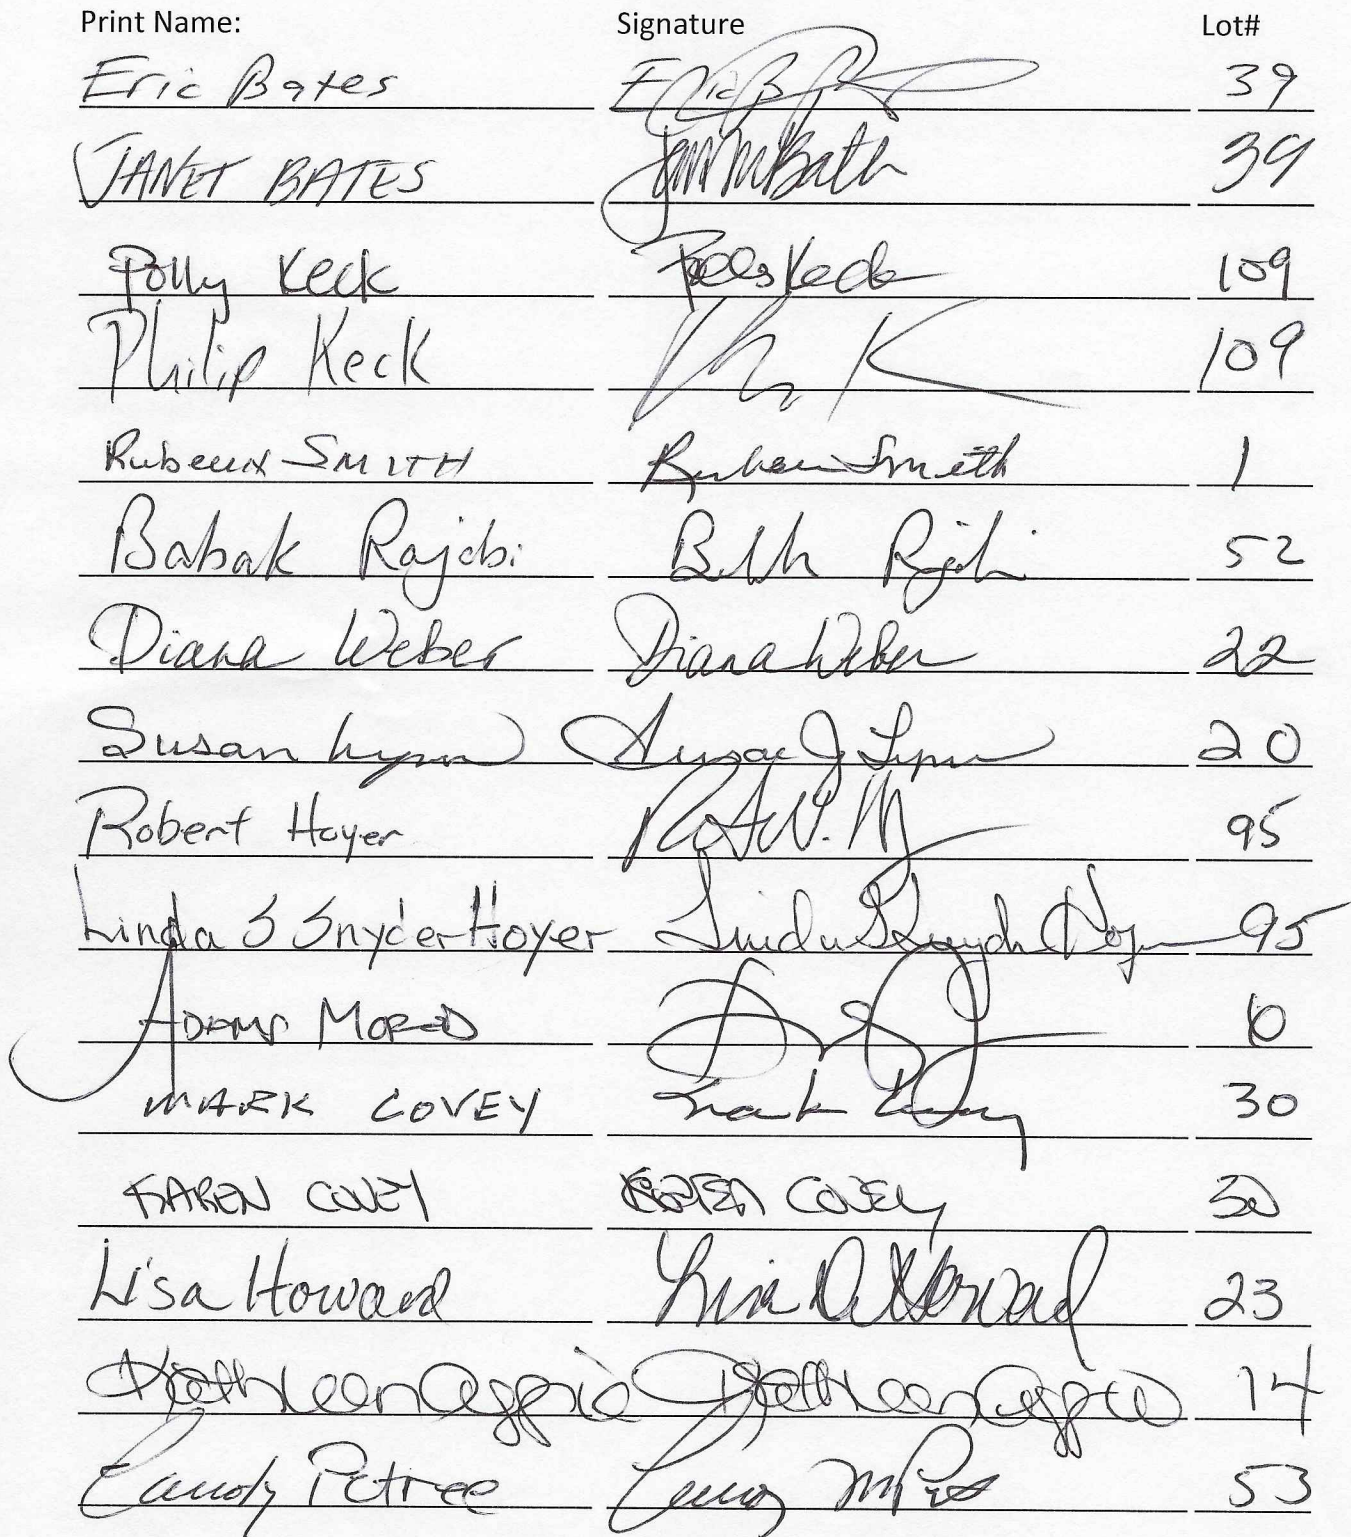 Print Name: Signature Lot#
Eric Bates Eric B 39
JANET BATES 39
Polly Keck Keck 109
Philip Keck K 109
SMITH Smith 1
Babak Rajabi 52
Diana Weber Diana Weber 22
Susan Lynn Susan J Lynn 20
Robert Hoyer 95
Linda S Snyder Hoyer Linda S Snyder Hoyer 95
ADAMS
MARK COVEY Mark Covey 30
KAREN COVEY KAREN COVEY 30
Lisa Howard Lisa A Howard 23
Kathleen Kathleen 14
Petree 53